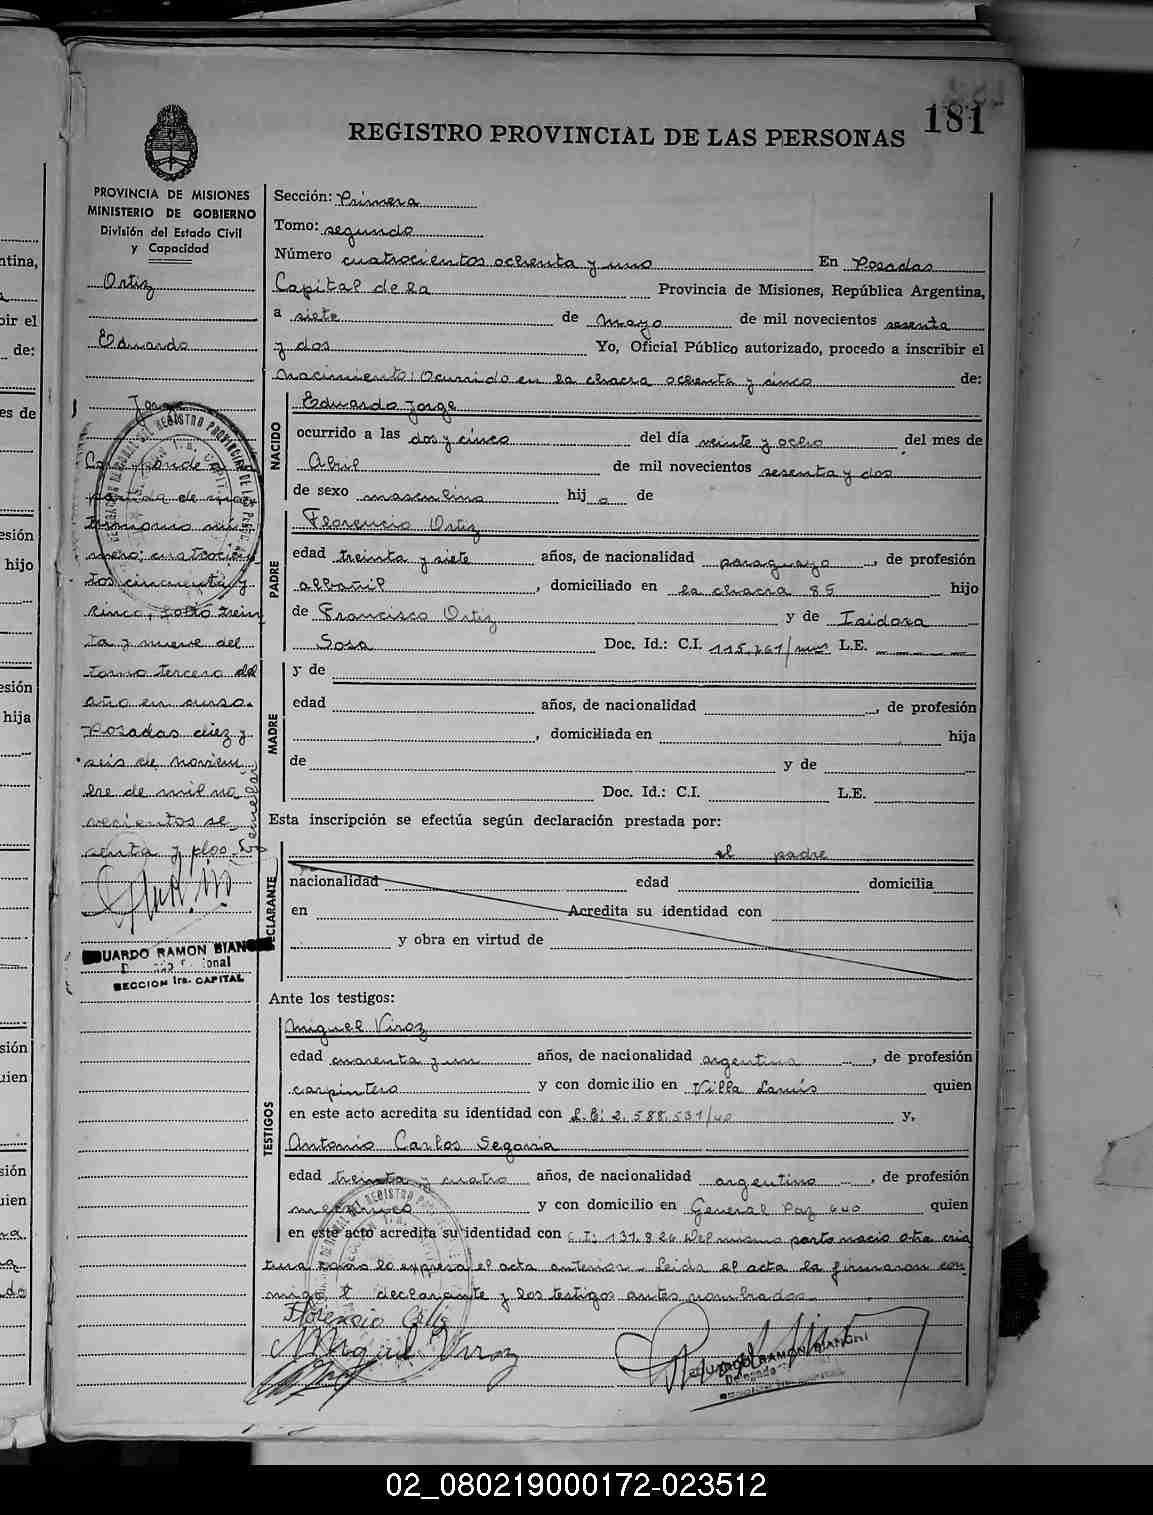 181
REGISTRO PROVINCIAL DE LAS PERSONAS
PROVINCIA DE MISIONES
MINISTERIO DE GOBIERNO
División del Estado Civil
y Capacidad
Ortiz
Eduardo
Jorge
Corresponde a
partida de ma
trimonio nú
mero: cuatrocien
tos cincuenta y
cinco, folio trein
ta y nueve del
tomo tercero del
año en curso.
Posadas diez y
seis de noviem
bre de mil no
vecientos se
senta y dos.
EDUARDO RAMON BIANCHI
SECCION 1ra. CAPITAL
Sección: Primera
Tomo: segundo
Número cuatrocientos ochenta y uno En Posadas
Capital de la Provincia de Misiones, República Argentina,
a siete de Mayo de mil novecientos sesenta
y dos Yo, Oficial Público autorizado, procedo a inscribir el
nacimiento: Ocurrido en la chacra ochenta y cinco de:
NACIDO
Eduardo Jorge
ocurrido a las dos y cinco del día veinte y ocho del mes de
Abril de mil novecientos sesenta y dos
de sexo masculino hij o de
PADRE
Florencio Ortiz
edad treinta y siete años, de nacionalidad paraguayo, de profesión
albañil, domiciliado en la chacra 85 hijo
de Francisco Ortiz y de Isidora
Sosa Doc. Id.: C.I. 115.761/ L.E.
MADRE
y de
edad años, de nacionalidad , de profesión
, domiciliada en hija
de y de
Doc. Id.: C.I. L.E.
Esta inscripción se efectúa según declaración prestada por:
DECLARANTE
el padre
nacionalidad edad domicilia
en Acredita su identidad con
y obra en virtud de
Ante los testigos:
TESTIGOS
Miguel Viroz
edad cuarenta y un años, de nacionalidad argentina, de profesión
carpintero y con domicilio en Villa Lanús quien
en este acto acredita su identidad con L.E: 2.588.531/40 y,
Antonio Carlos Segovia
edad treinta y cuatro años, de nacionalidad argentino, de profesión
mecánico y con domicilio en General Paz 640 quien
en este acto acredita su identidad con C.I: 131.826 Del mismo parto nacio otra cria
tura como lo expresa el acta anterior. Leida el acta la firmaron con
migo el declarante y los testigos antes nombrados.
Florencio Ortiz
Miguel Viroz
EDUARDO RAMON BIANCHI
02_080219000172-023512